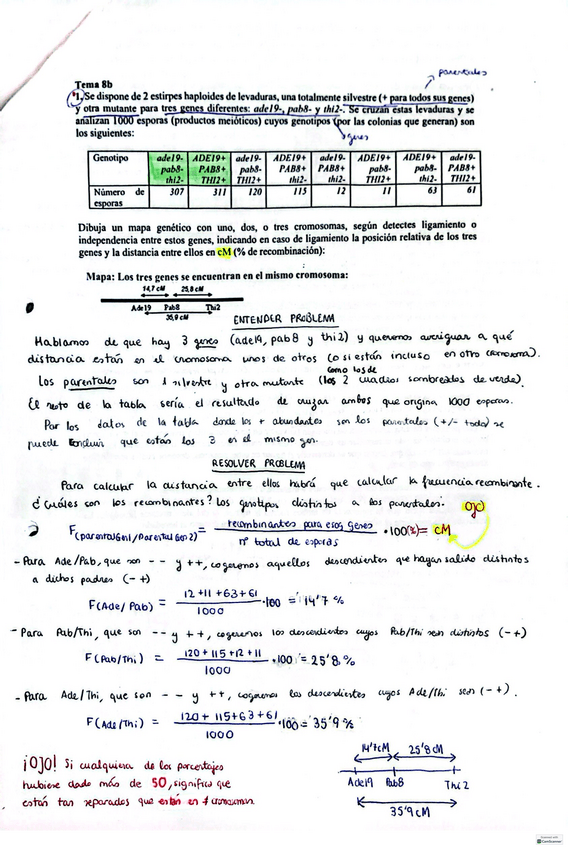 parentales
Tema 8b
1. Se dispone de 2 estirpes haploides de levaduras, una totalmente silvestre (+ para todos sus genes)
y otra mutante para tres genes diferentes: ade19-, pab8- y thi2-. Se cruzan estas levaduras y se
analizan 1000 esporas (productos meióticos) cuyos genotipos (por las colonias que generan) son
los siguientes:
genes
Genotipo ade19- ADE19+ ade19- ADE19+ ade19- ADE19+ ADE19+ ade19-
pab8- PAB8+ pab8- PAB8+ PAB8+ pab8- pab8- PAB8+
thi2- THI2+ THI2+ thi2- thi2- THI2+ thi2- THI2+
Número de esporas 307 311 120 115 12 11 63 61
Dibuja un mapa genético con uno, dos, o tres cromosomas, según detectes ligamiento o
independencia entre estos genes, indicando en caso de ligamiento la posición relativa de los tres
genes y la distancia entre ellos en cM (% de recombinación):
Mapa: Los tres genes se encuentran en el mismo cromosoma:
14,7 cM 25,8 cM
Ade19 Pab8 Thi2
35,9 cM
ENTENDER PROBLEMA
Hablamos de que hay 3 genes (ade19, pab8 y thi2) y queremos averiguar a qué
distancia están en el cromosoma unos de otros (o si están incluso en otro cromosoma).
como los de
Los parentales son 1 silvestre y otra mutante (los 2 cuadros sombreados de verde).
El resto de la tabla sería el resultado de cruzar ambos que origina 1000 esporas.
Por los datos de la tabla donde los + abundantes son los parentales (+/- todo) se
puede concluir que están los 3 en el mismo gen.
RESOLVER PROBLEMA
Para calcular la distancia entre ellos habrá que calcular la frecuencia recombinante.
¿Cuáles son los recombinantes? Los genotipos distintos a los parentales. OJO
F(parental Gen1/Parental Gen2) = recombinantes para esos genes / nº total de esporas · 100 (%) = cM
- Para Ade/Pab, que son -- y ++, cogeremos aquellos descendientes que hayan salido distintos
a dichos padres (- +)
F(Ade/Pab) = 12 + 11 + 63 + 61 / 1000 · 100 = 14'7 %
- Para Pab/Thi, que son -- y ++, cogeremos los descendientes cuyos Pab/Thi sean distintos (- +)
F(Pab/Thi) = 120 + 115 + 12 + 11 / 1000 · 100 = 25'8 %
- Para Ade/Thi, que son - - y ++, cogeremos los descendientes cuyos Ade/Thi sean (- +).
F(Ade/Thi) = 120 + 115 + 63 + 61 / 1000 · 100 = 35'9 %
¡OJO! Si cualquiera de los porcentajes
hubiese dado más de 50, significa que
están tan separados que están en ≠ cromosomas.
14'7 cM 25'8 cM
Ade19 Pab8 Thi2
35'9 cM
CamScanner